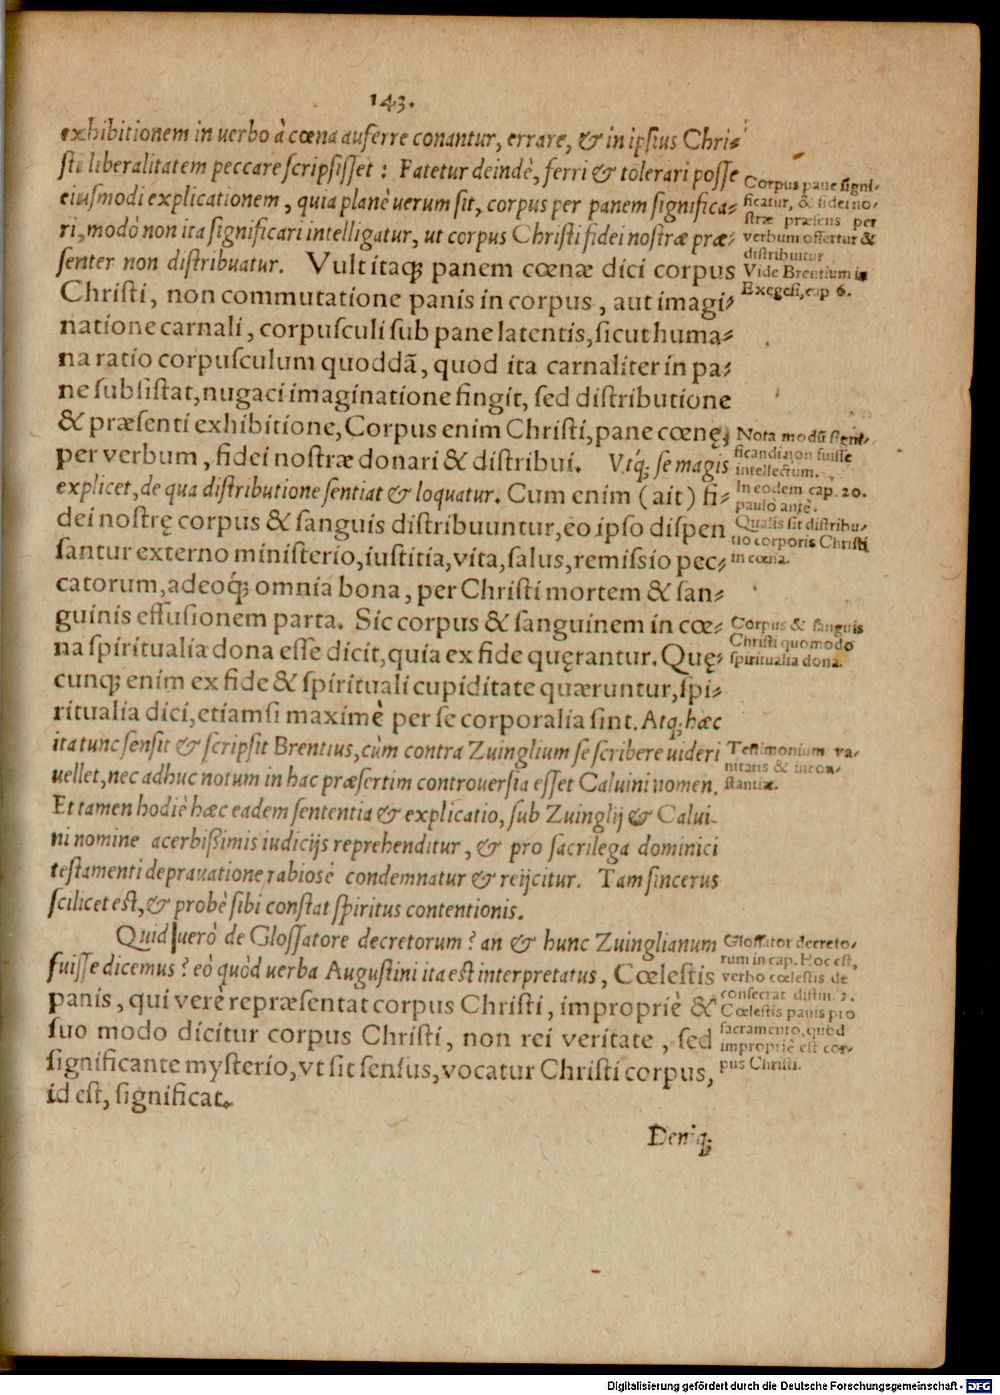 143.
exhibitionem in uerbo à cœna auferre conantur, errare, & in ipsius Chri⸗
sti liberalitatem peccare scripsisset : Fatetur deindè, ferri & tolerari posse
eiusmodi explicationem, quia planè uerum sit, corpus per panem significa⸗
ri, modò non ita significari intelligatur, ut corpus Christi fidei nostræ præ⸗
senter non distribuatur. Vult itaq; panem cœnæ dici corpus
Christi, non commutatione panis in corpus, aut imagi⸗
natione carnali, corpusculi sub pane latentis, sicut huma⸗
na ratio corpusculum quoddã, quod ita carnaliter in pa⸗
ne subsistat, nugaci imaginatione fingit, sed distributione
& præsenti exhibitione, Corpus enim Christi, pane cœnę,
per verbum, fidei nostræ donari & distribui. Vtq; se magis
explicet, de qua distributione sentiat & loquatur. Cum enim (ait) fi⸗
dei nostrę corpus & sanguis distribuuntur, eo ipso dispen
santur externo ministerio, iustitia, vita, salus, remissio pec⸗
catorum, adeoq; omnia bona, per Christi mortem & san⸗
guinis effusionem parta. Sic corpus & sanguinem in cœ⸗
na spiritualia dona esse dicit, quia ex fide quęrantur. Quę⸗
cunq; enim ex fide & spirituali cupiditate quæruntur, spi⸗
ritualia dici, etiamsi maximè per se corporalia sint. Atq; hæc
ita tunc sensit & scripsit Brentius, cùm contra Zuinglium se scribere uideri
uellet, nec adhuc notum in hac præsertim controuersia esset Caluini nomen.
Et tamen hodiè hæc eadem sententia & explicatio, sub Zuinglij & Calui-
ni nomine acerbißimis iudicijs reprehenditur, & pro sacrilega dominici
testamenti deprauatione rabiosè condemnatur & reijcitur. Tam sincerus
scilicet est, & probè sibi constat spiritus contentionis.
Quid uerò de Glossatore decretorum? an & hunc Zuinglianum
fuisse dicemus? eò quòd uerba Augustini ita est interpretatus, Cœlestis
panis, qui verè repræsentat corpus Christi, impropriè &
suo modo dicitur corpus Christi, non rei veritate, sed
significante mysterio, vt sit sensus, vocatur Christi corpus,
id est, significat.
Deniq;
Corpus pane signi⸗
ficatur, & fidei no⸗
stræ præsens per
verbum offertur &
distribuitur
Vide Brentium in
Exegesi, cap 6.
Nota modũ signi⸗
ficandi non fuisse
intellectum.
In eodem cap. 20.
paulò antè.
Qualis sit distribu⸗
tio corporis Christi
in cœna.
Corpus & sanguis
Christi quomodo
spiritualia dona.
Testimonium va⸗
nitatis & incon⸗
stantiæ.
Glossator decreto⸗
rum in cap. Hoc est,
verbo cœlestis de
consecrat distin. 2.
Cœlestis panis pro
sacramento, quod
impropriè est cor⸗
pus Christi.
Digitalisierung gefördert durch die Deutsche Forschungsgemeinschaft - DFG